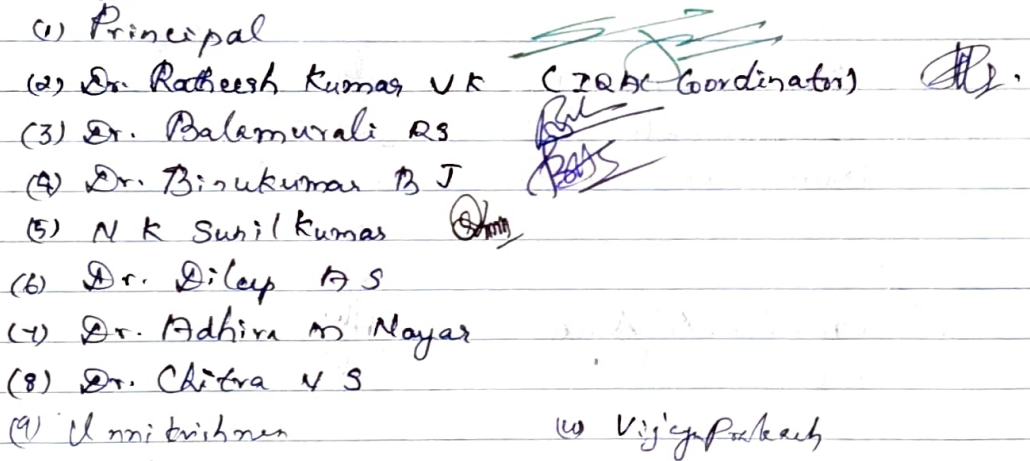 (1) Principal
(2) Dr. Ratheesh Kumar V K (IQAC Coordinator)
(3) Dr. Balamurali R S
(4) Dr. Binukumar B J
(5) N K Sunil Kumar
(6) Dr. Dileep A S
(7) Dr. Adhira M Nayar
(8) Dr. Chitra V S
(9) Unnikrishnan (10) Vijayaprakash